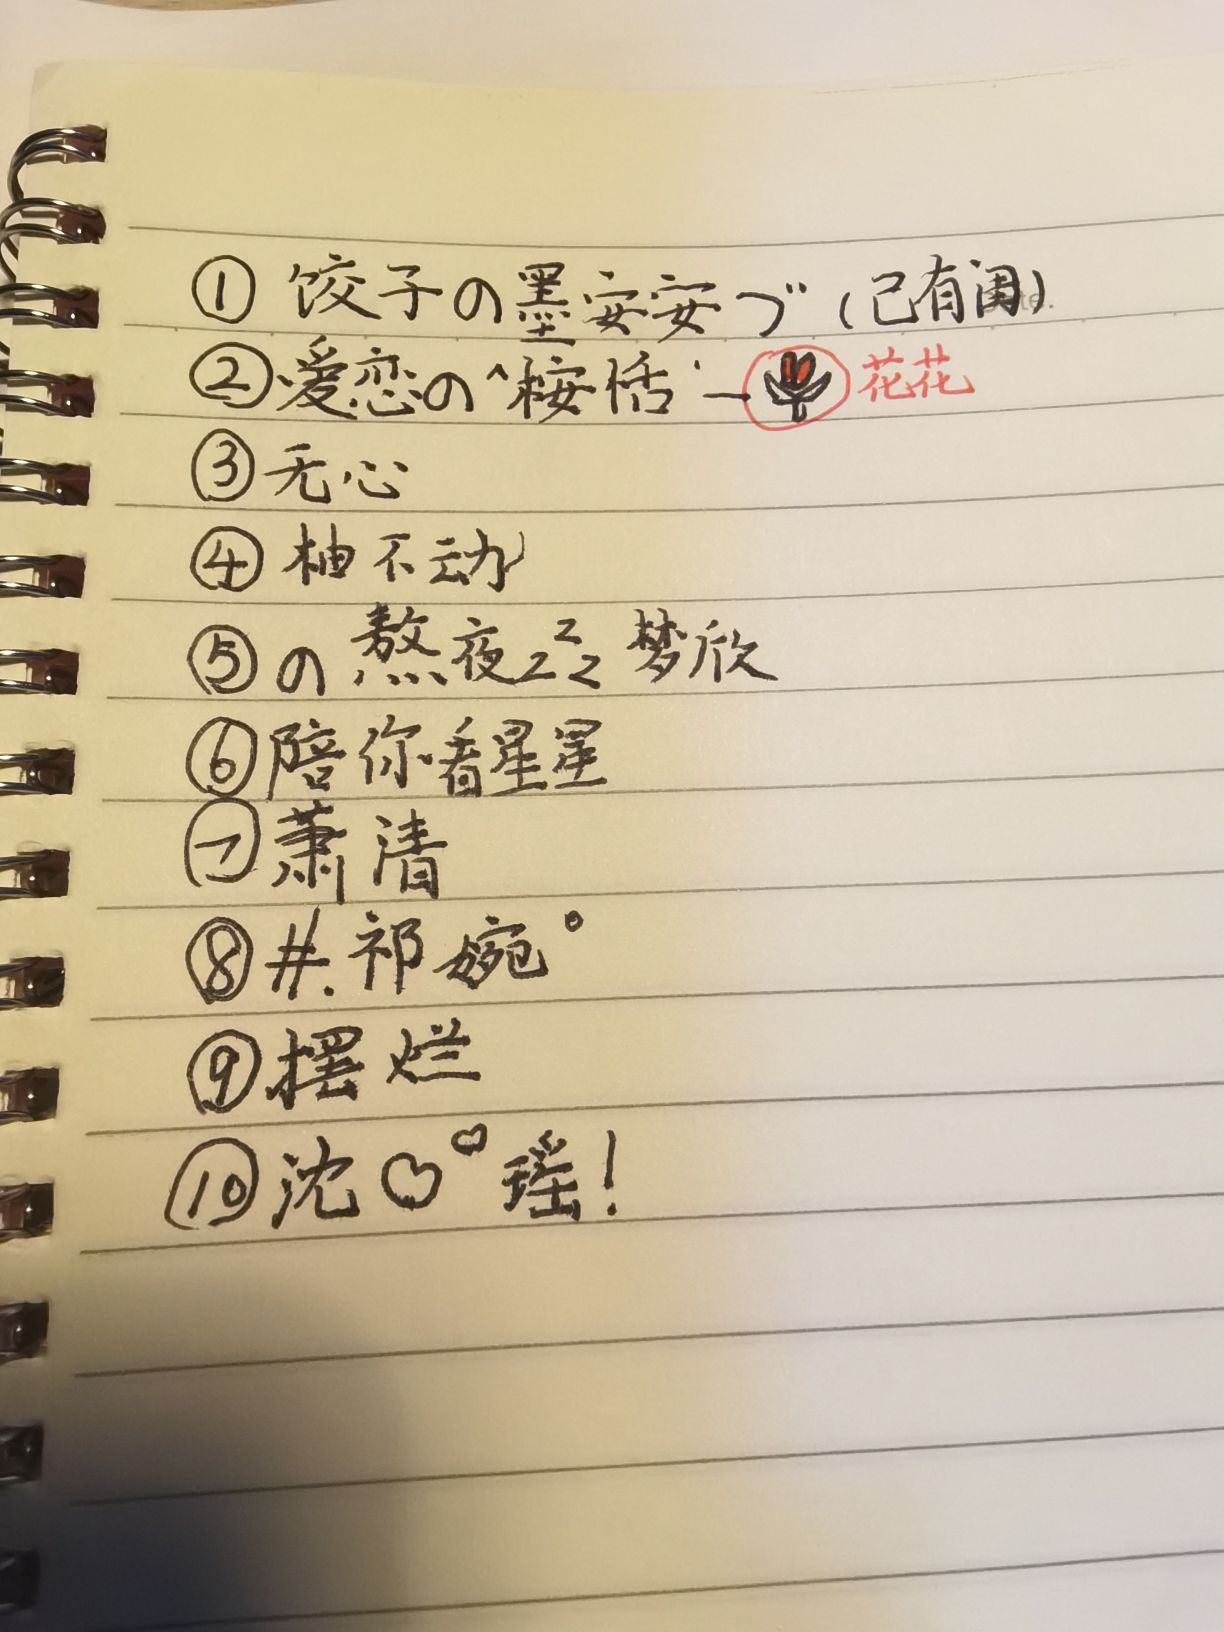 ① 饺子の墨安安づ (已有闺)
② 爱恋の^桉恬' — 花花
③ 无心
④ 柚不动
⑤ の 熬夜zzz 梦欣
⑥ 陪你看星星
⑦ 萧清
⑧ #.祁婉°
⑨ 摆烂
⑩ 沈♡♡瑶!